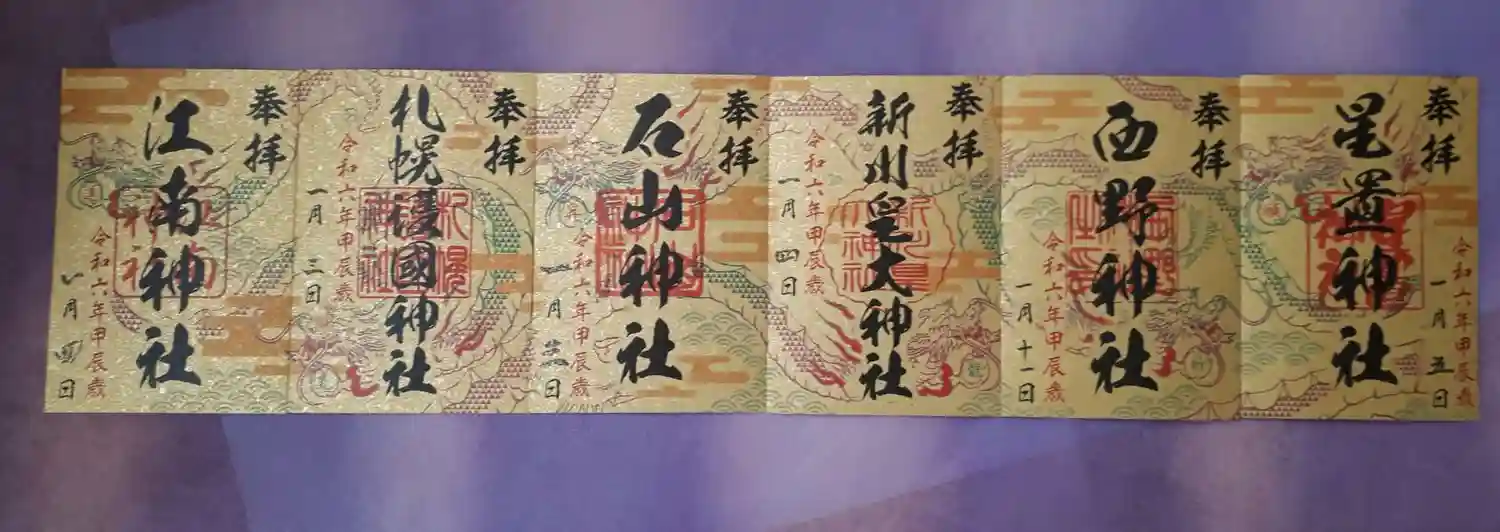 奉拝
星置神社
令和六年甲辰歳
一月五日
奉拝
西野神社
令和六年甲辰歳
一月十一日
奉拝
新川皇大神社
令和六年甲辰歳
一月四日
奉拝
石山神社
令和六年甲辰歳
奉拝
札幌護國神社
令和六年甲辰歳
一月三日
奉拝
江南神社
令和六年甲辰歳